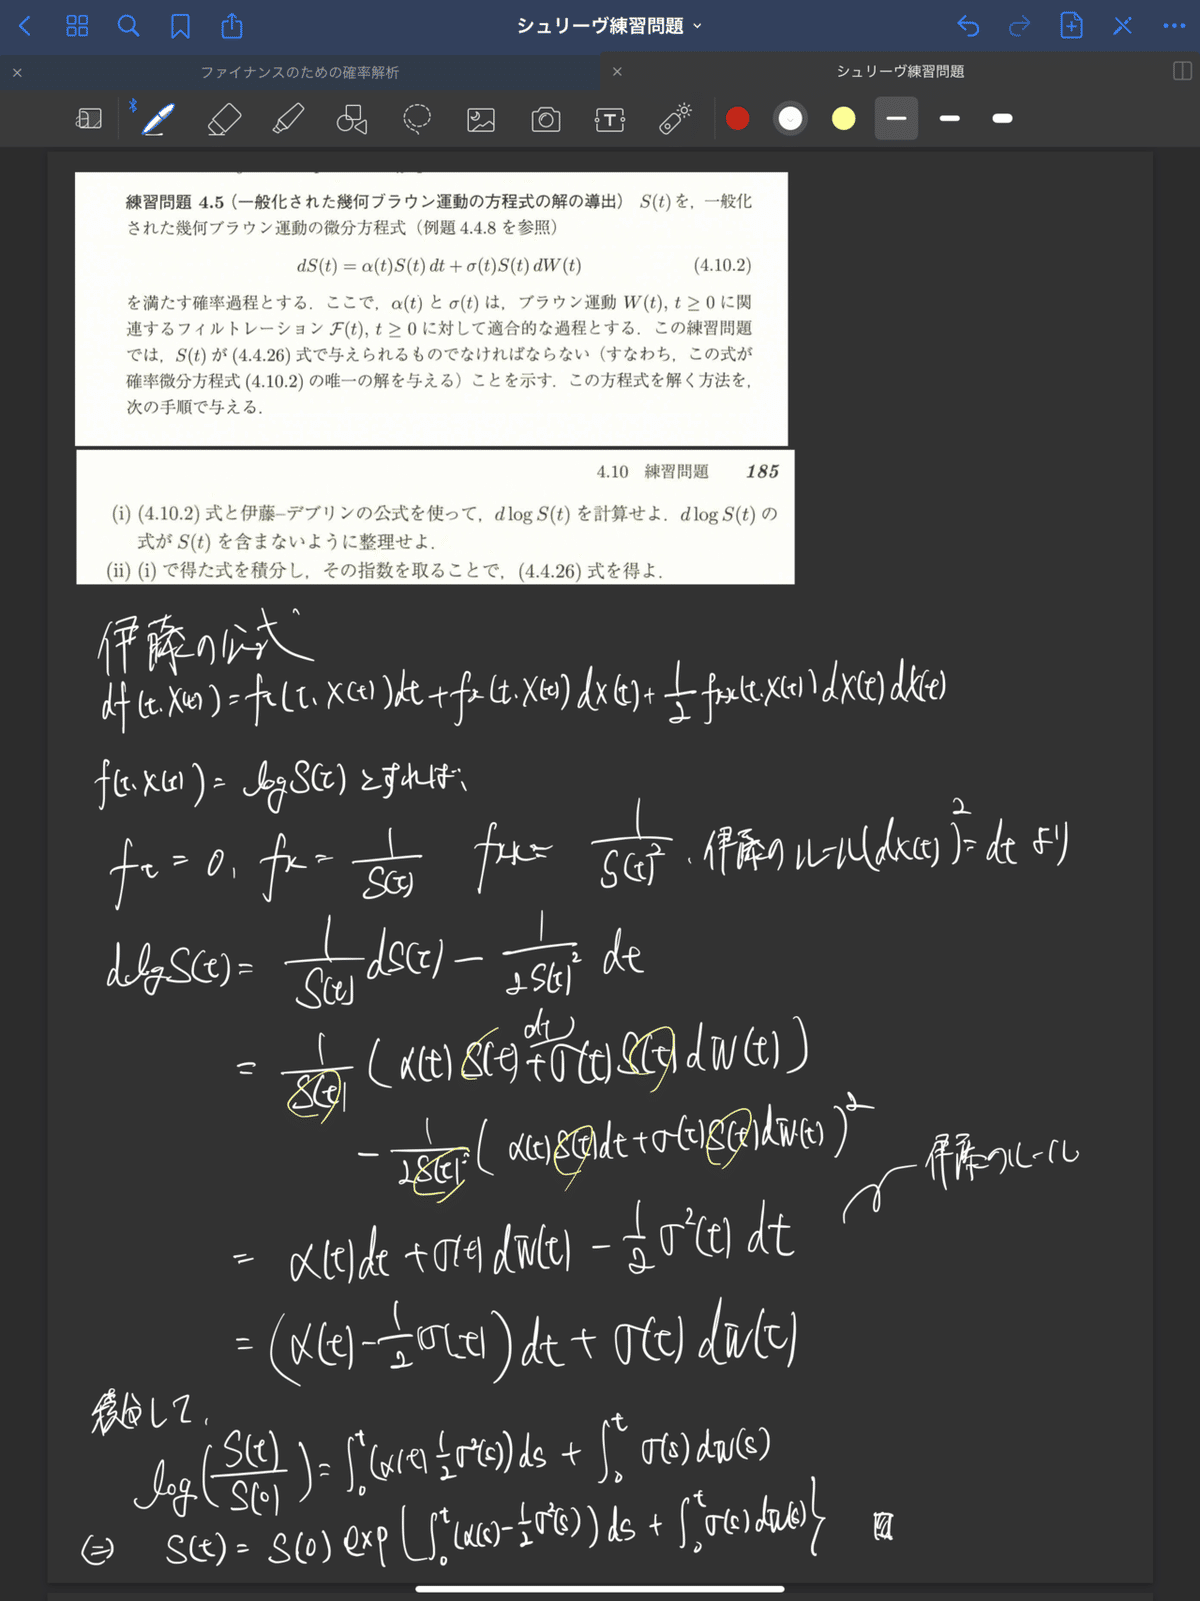 シュリーヴ練習問題
ファイナンスのための確率解析
シュリーヴ練習問題
練習問題 4.5(一般化された幾何ブラウン運動の方程式の解の導出) S(t) を,一般化
された幾何ブラウン運動の微分方程式(例題 4.4.8 を参照)
dS(t) = α(t)S(t) dt + σ(t)S(t) dW(t) (4.10.2)
を満たす確率過程とする.ここで,α(t) と σ(t) は,ブラウン運動 W(t), t ≥ 0 に関
連するフィルトレーション F(t), t ≥ 0 に対して適合的な過程とする.この練習問題
では,S(t) が (4.4.26) 式で与えられるものでなければならない(すなわち,この式が
確率微分方程式 (4.10.2) の唯一の解を与える)ことを示す.この方程式を解く方法を,
次の手順で与える.
4.10 練習問題 185
(i) (4.10.2) 式と伊藤–デブリンの公式を使って,d log S(t) を計算せよ.d log S(t) の
式が S(t) を含まないように整理せよ.
(ii) (i) で得た式を積分し,その指数を取ることで,(4.4.26) 式を得よ.
伊藤の公式
df(t, X(t)) = ft(t, X(t))dt + fx(t, X(t))dX(t) + 1/2 fxx(t, X(t))dX(t)dX(t)
f(t, X(t)) = log S(t) とすれば、
ft = 0, fx = 1/S(t) fxx = 1/S(t)², 伊藤のルール(dX(t))² = dt より
d log S(t) = 1/S(t) dS(t) − 1/2S(t)² dt
= 1/S(t) (α(t)S(t)dt + σ(t)S(t)dW(t))
− 1/2S(t)² (α(t)S(t)dt + σ(t)S(t)dW(t))²
伊藤のルール
= α(t)dt + σ(t)dW(t) − 1/2 σ²(t) dt
= (α(t) − 1/2 σ(t)) dt + σ(t) dW(t)
積分して,
log(S(t)/S(0)) = ∫₀ᵗ(α(t) 1/2 σ²(s))ds + ∫₀ᵗ σ(s)dW(s)
⇔ S(t) = S(0) exp{∫₀ᵗ(α(s) − 1/2 σ²(s))ds + ∫₀ᵗ σ(s)dW(s)}